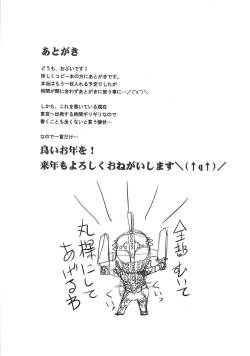 あとがき
どうも、おぶいです！
珍しくコピー本の方にあとがきです。
本当はもう一枚入れる予定でしたが
時間が間に合わずあとがきに使う事に…／(^o^)＼
しかも、これを書いている現在
東京へ出発する時間ギリギリなので
書くことも全くないと言う惨状…
なので一言だけ…
良いお年を！
来年もよろしくおねがいします＼(↑q↑)／
全部むいて
丸裸にして
あげるわ